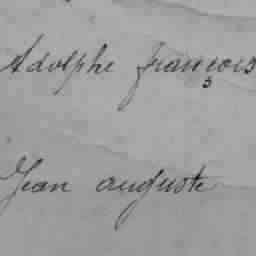 Adolphe françois
Jean auguste